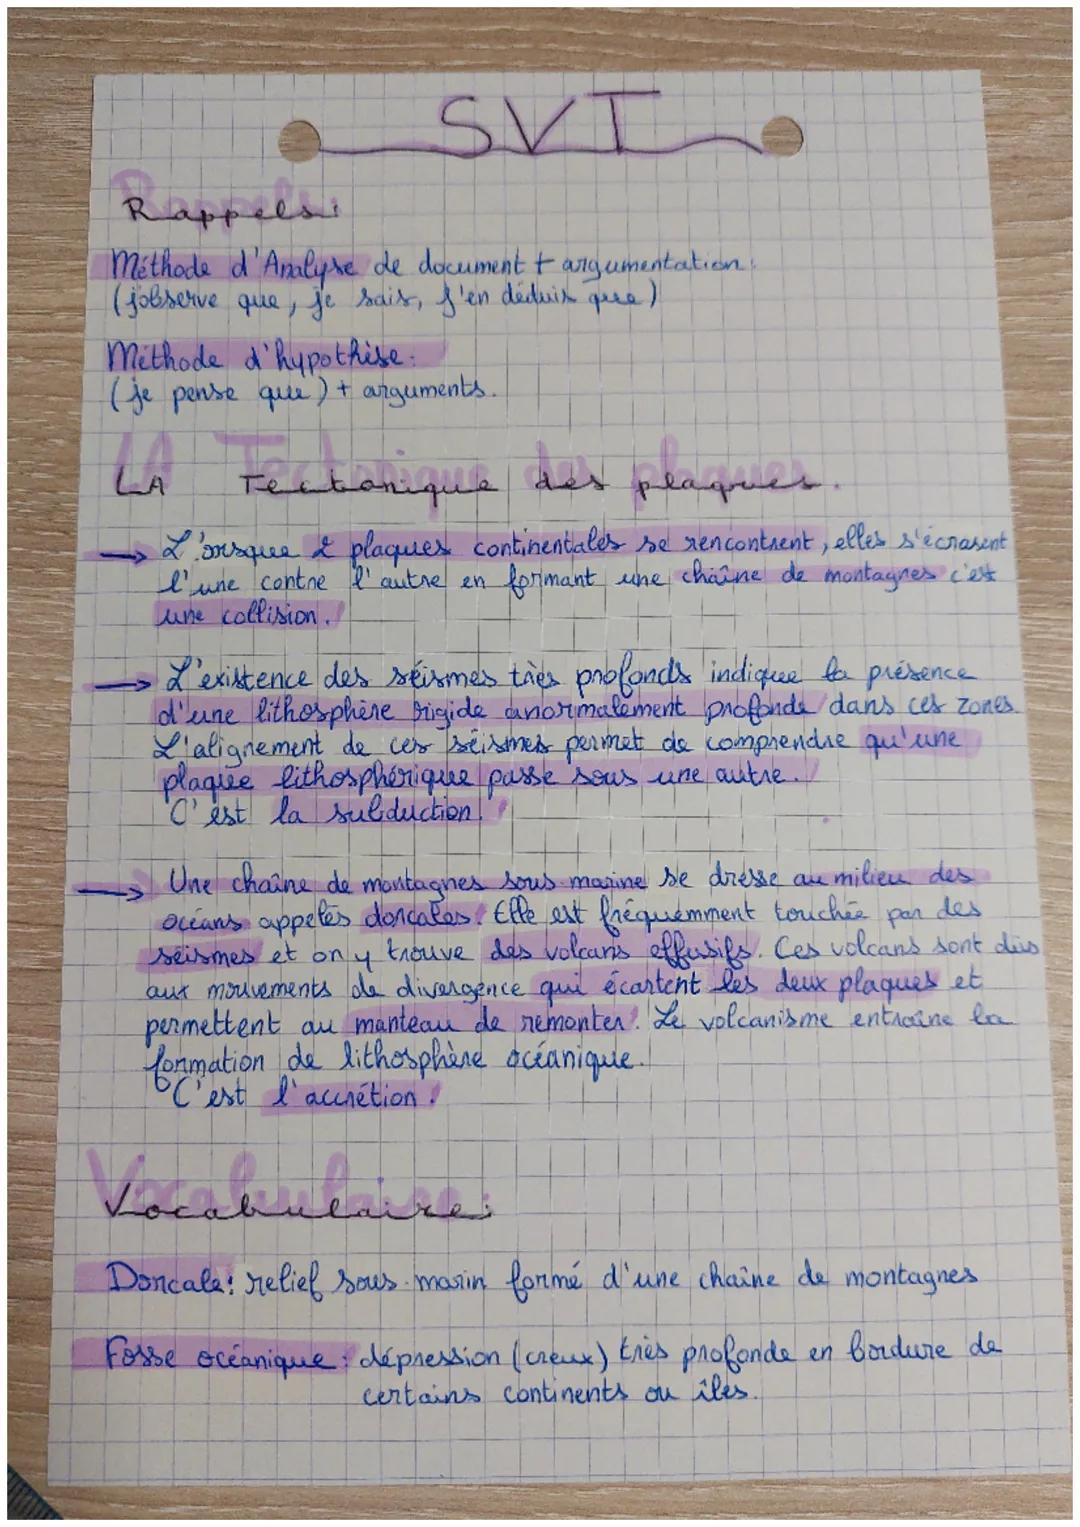 SVT
Rappels:
Méthode d'Analyse de document + argumentation:
(j'observe que, je sais, j'en déduis que)
Méthode d'hypothèse:
(je pense que) + arguments.
LA Tectonique des plaques.
→ L'orsque 2 plaques continentales se rencontrent, elles s'écrasent
l'une contre l'autre en formant une chaîne de montagnes c'est
une collision.
→ L'existence des séismes très profonds indique la présence
d'une lithosphère rigide anormalement profonde dans ces zones.
L'alignement de ces séismes permet de comprendre qu'une
plaque lithosphérique passe sous une autre.
C'est la subduction.
→ Une chaîne de montagnes sous-marine se dresse au milieu des
océans appelés dorcales. Elle est fréquemment touchée par des
séismes et on y trouve des volcans effusifs. Ces volcans sont dûs
aux mouvements de divergence qui écartent les deux plaques et
permettent au manteau de remonter. Le volcanisme entraîne la
formation de lithosphère océanique.
C'est l'accrétion.
Vocabulaire:
Dorcale: relief sous-marin formé d'une chaîne de montagnes
Fosse océanique: dépression (creux) très profonde en bordure de
certains continents ou îles.